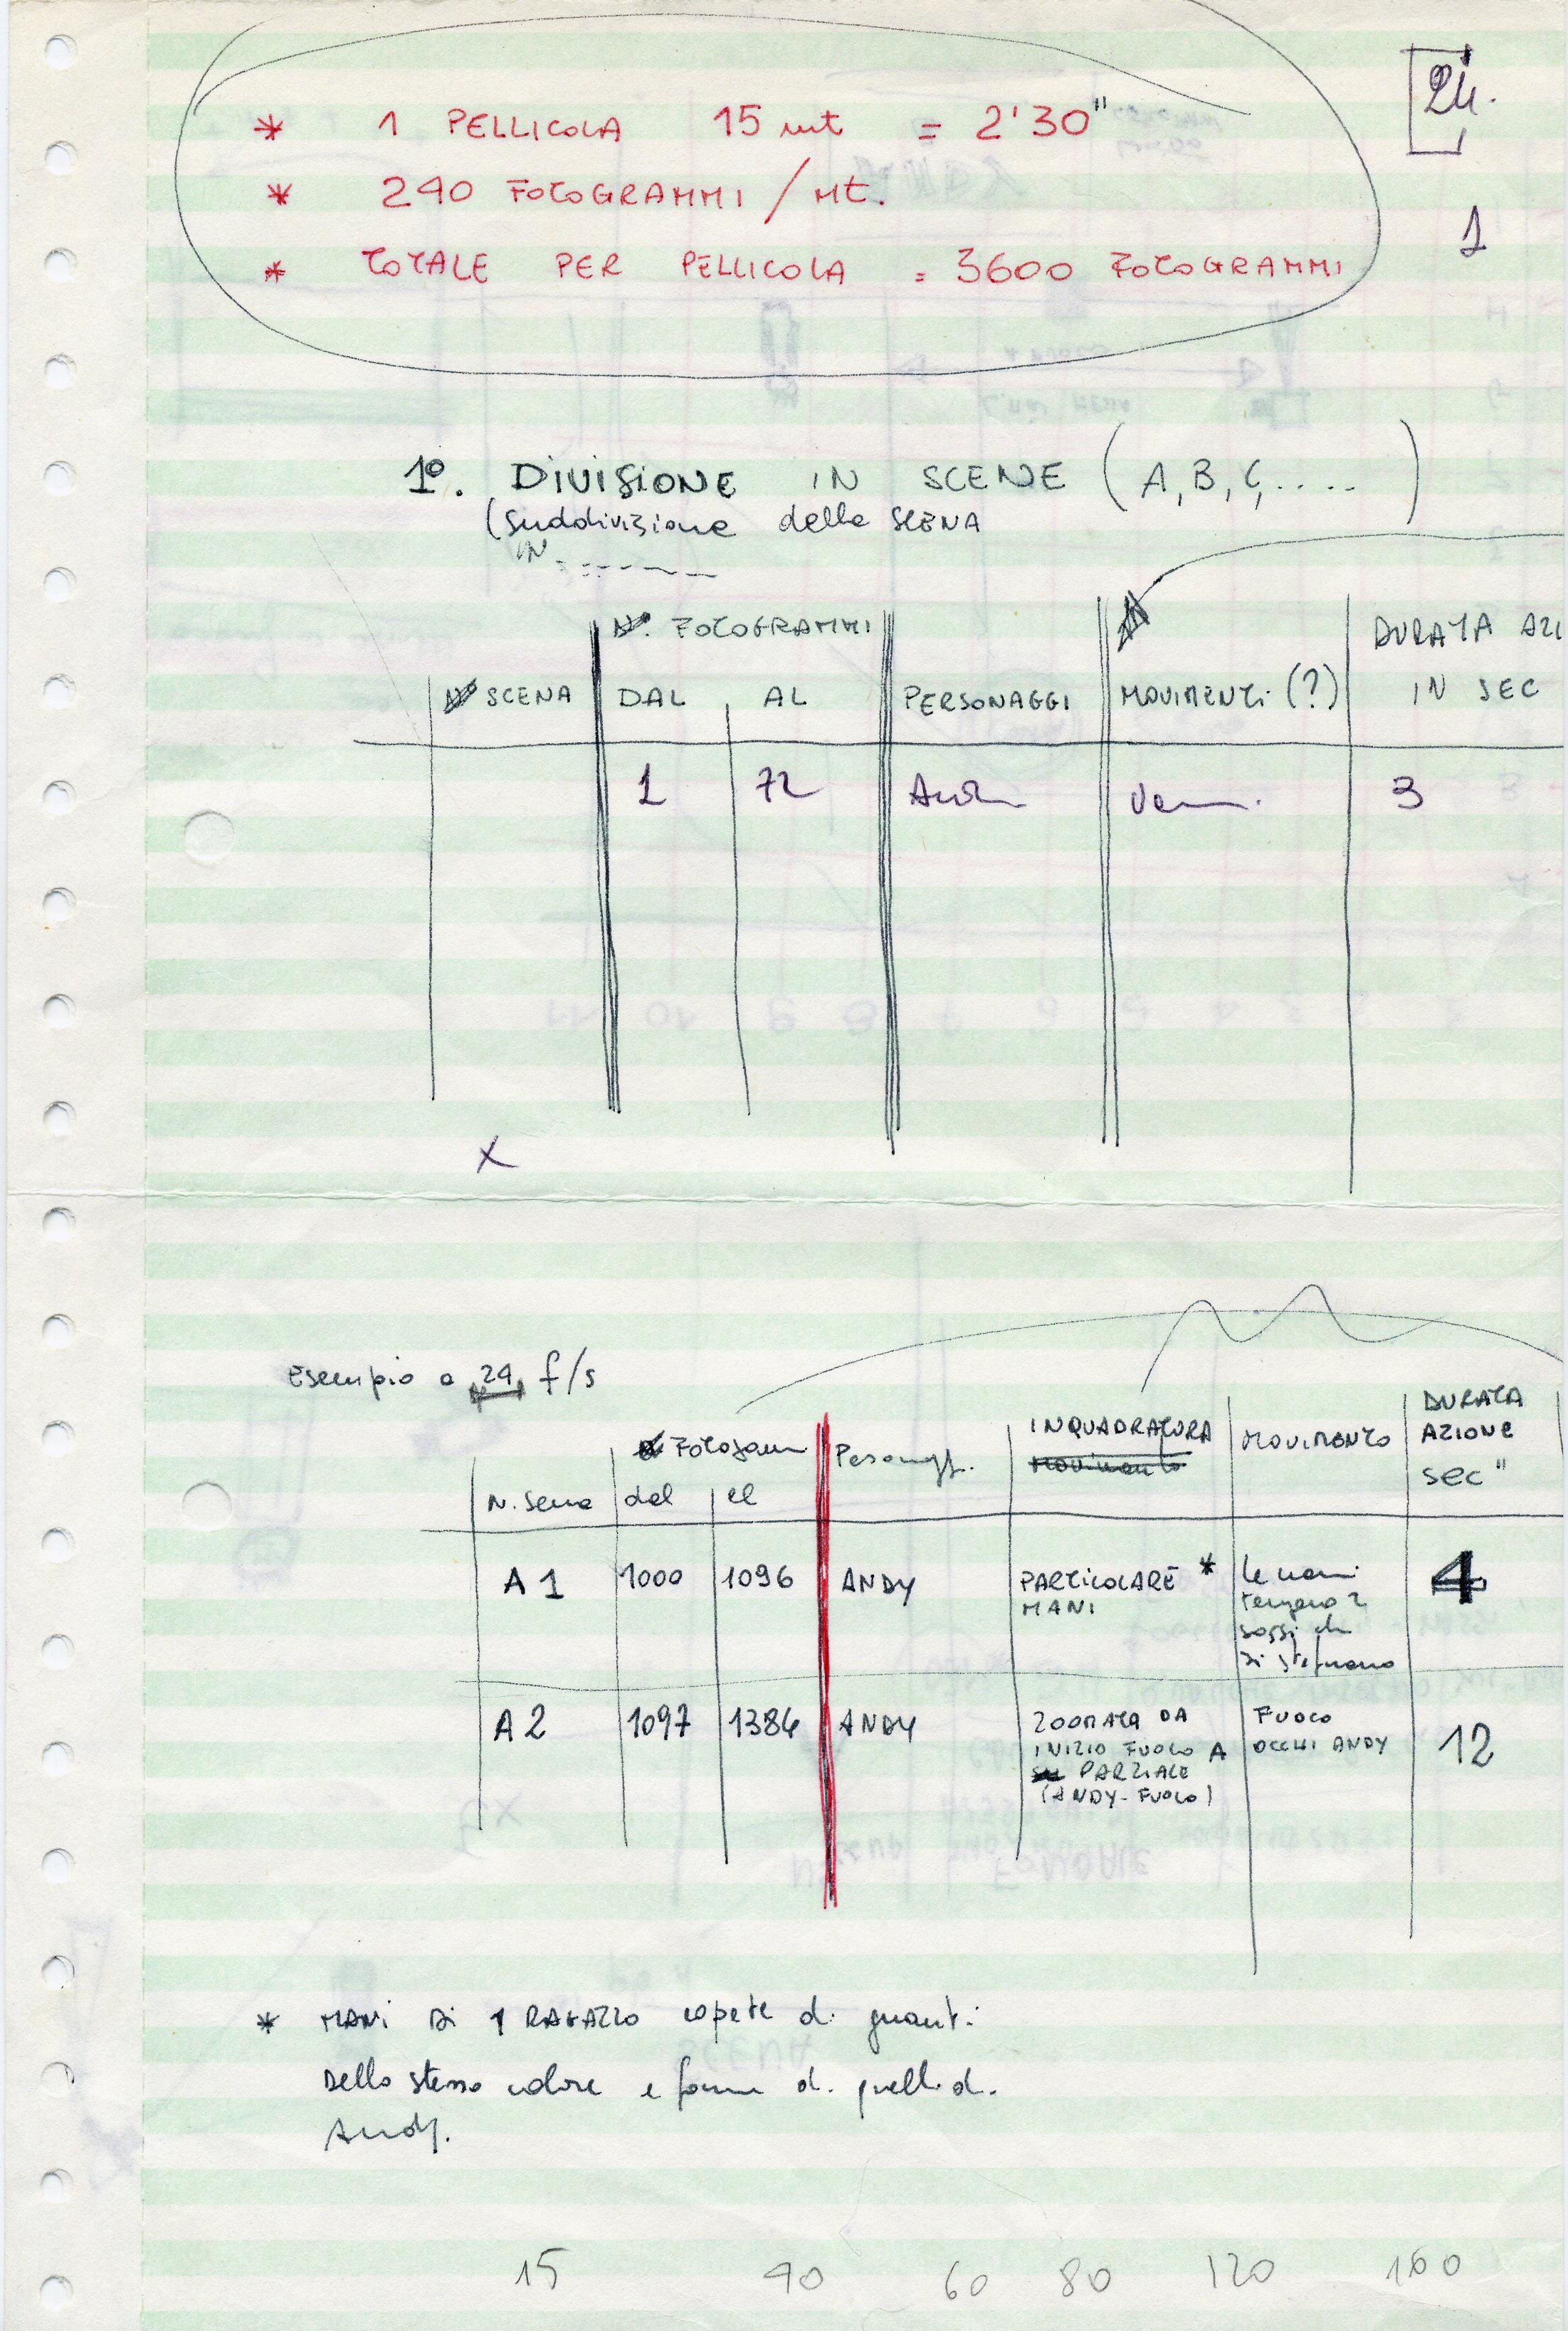 * 1 PELLICOLA 15 mt = 2'30"
24.
* 240 FOTOGRAMMI / Mt.
1
* TOTALE PER PELLICOLA = 3600 FOTOGRAMMI
1º. DIVISIONE IN SCENE (A, B, C, ....)
(suddivisione della SCENA
IN ------
Nº. FOTOGRAMMI
DURATA AZI
Nº SCENA DAL AL PERSONAGGI MOVIMENTI (?) IN SEC
1 72 3
X
Esempio a 24 f/s
DURATA
INQUADRATURA MOVIMENTO AZIONE
Movimento
sec"
N. Scena dal al
A1 1000 1096 ANDY PARTICOLARE * Le mani 4
MANI tengono 2
sassi che
si sfregano
A2 1097 1384 ANDY ZOOMATA DA FUOCO 12
INIZIO FUOCO A OCCHI ANDY
PARZIALE
(ANDY-FUOCO)
* MANI DI 1 RAGAZZO coperte di guanti
Dello stesso colore e forma di quelli di
Andy.
15 40 60 80 120 160